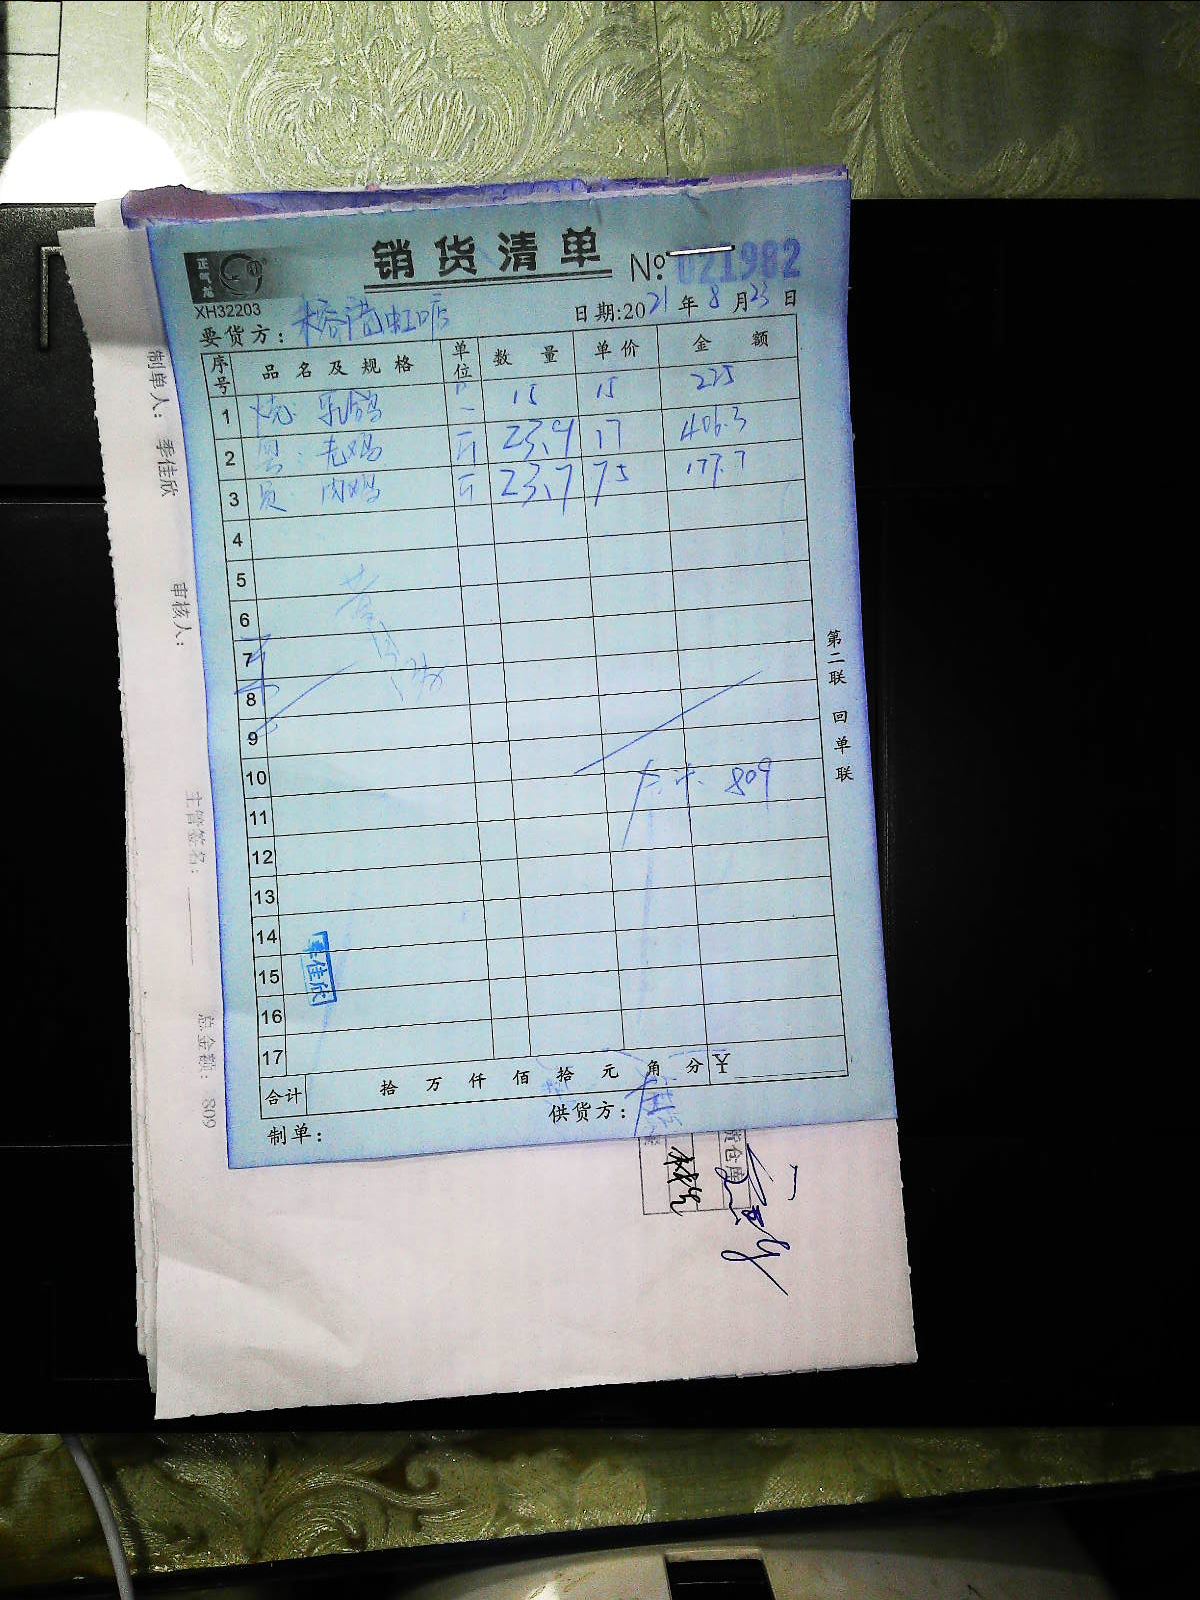 正气龙
销货清单
№ 021982
XH32203
要货方：
日期:2021年8月23日
序号 品名及规格 单位 数量 单价 金额
1 烧. 乳鸽 15 15 225
2 老鸡 斤 23.9 17 406.3
3 肉鸡 斤 23.7 7.5 177.7
4
5
6
7
8
9
10
809
11
12
13
14
15
16
17
季佳欣
合计 拾万仟佰拾元角分 ¥
制单：
供货方：
第二联 回单联
制单人： 季佳欣
审核人：
主管签名：
总金额： 809
仓库